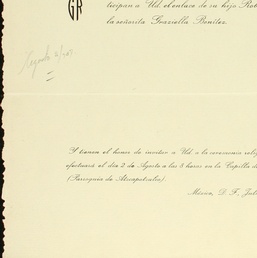 GR
ticipan a Ud. el enlace de su hijo Rob
la señorita Graziella Benítez.
Agosto 2/
Y tienen el honor de invitar a Ud. a la ceremonia reli
efectuará el día 2 de Agosto a las 8 horas en la Capilla de
(Parroquia de Atzcapotzalco)
México, D. F. Juli